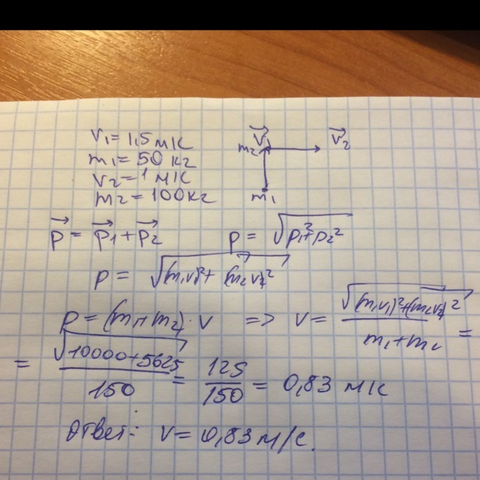 v₁ = 1,5 м/с
m₁ = 50 кг
v₂ = 1 м/с
m₂ = 100 кг
V⃗ m₂ v⃗₂
m₁
p⃗ = p⃗₁ + p⃗₂ p = √(p₁² + p₂²)
p = √((m₁v₁)² + (m₂v₂)²)
p = (m₁+m₂)·v => v = √((m₁v₁)²+(m₂v₂)²) / (m₁+m₂) =
= √(10000+5625) / 150 = 125/150 = 0,83 м/с
Ответ: v = 0,83 м/с.